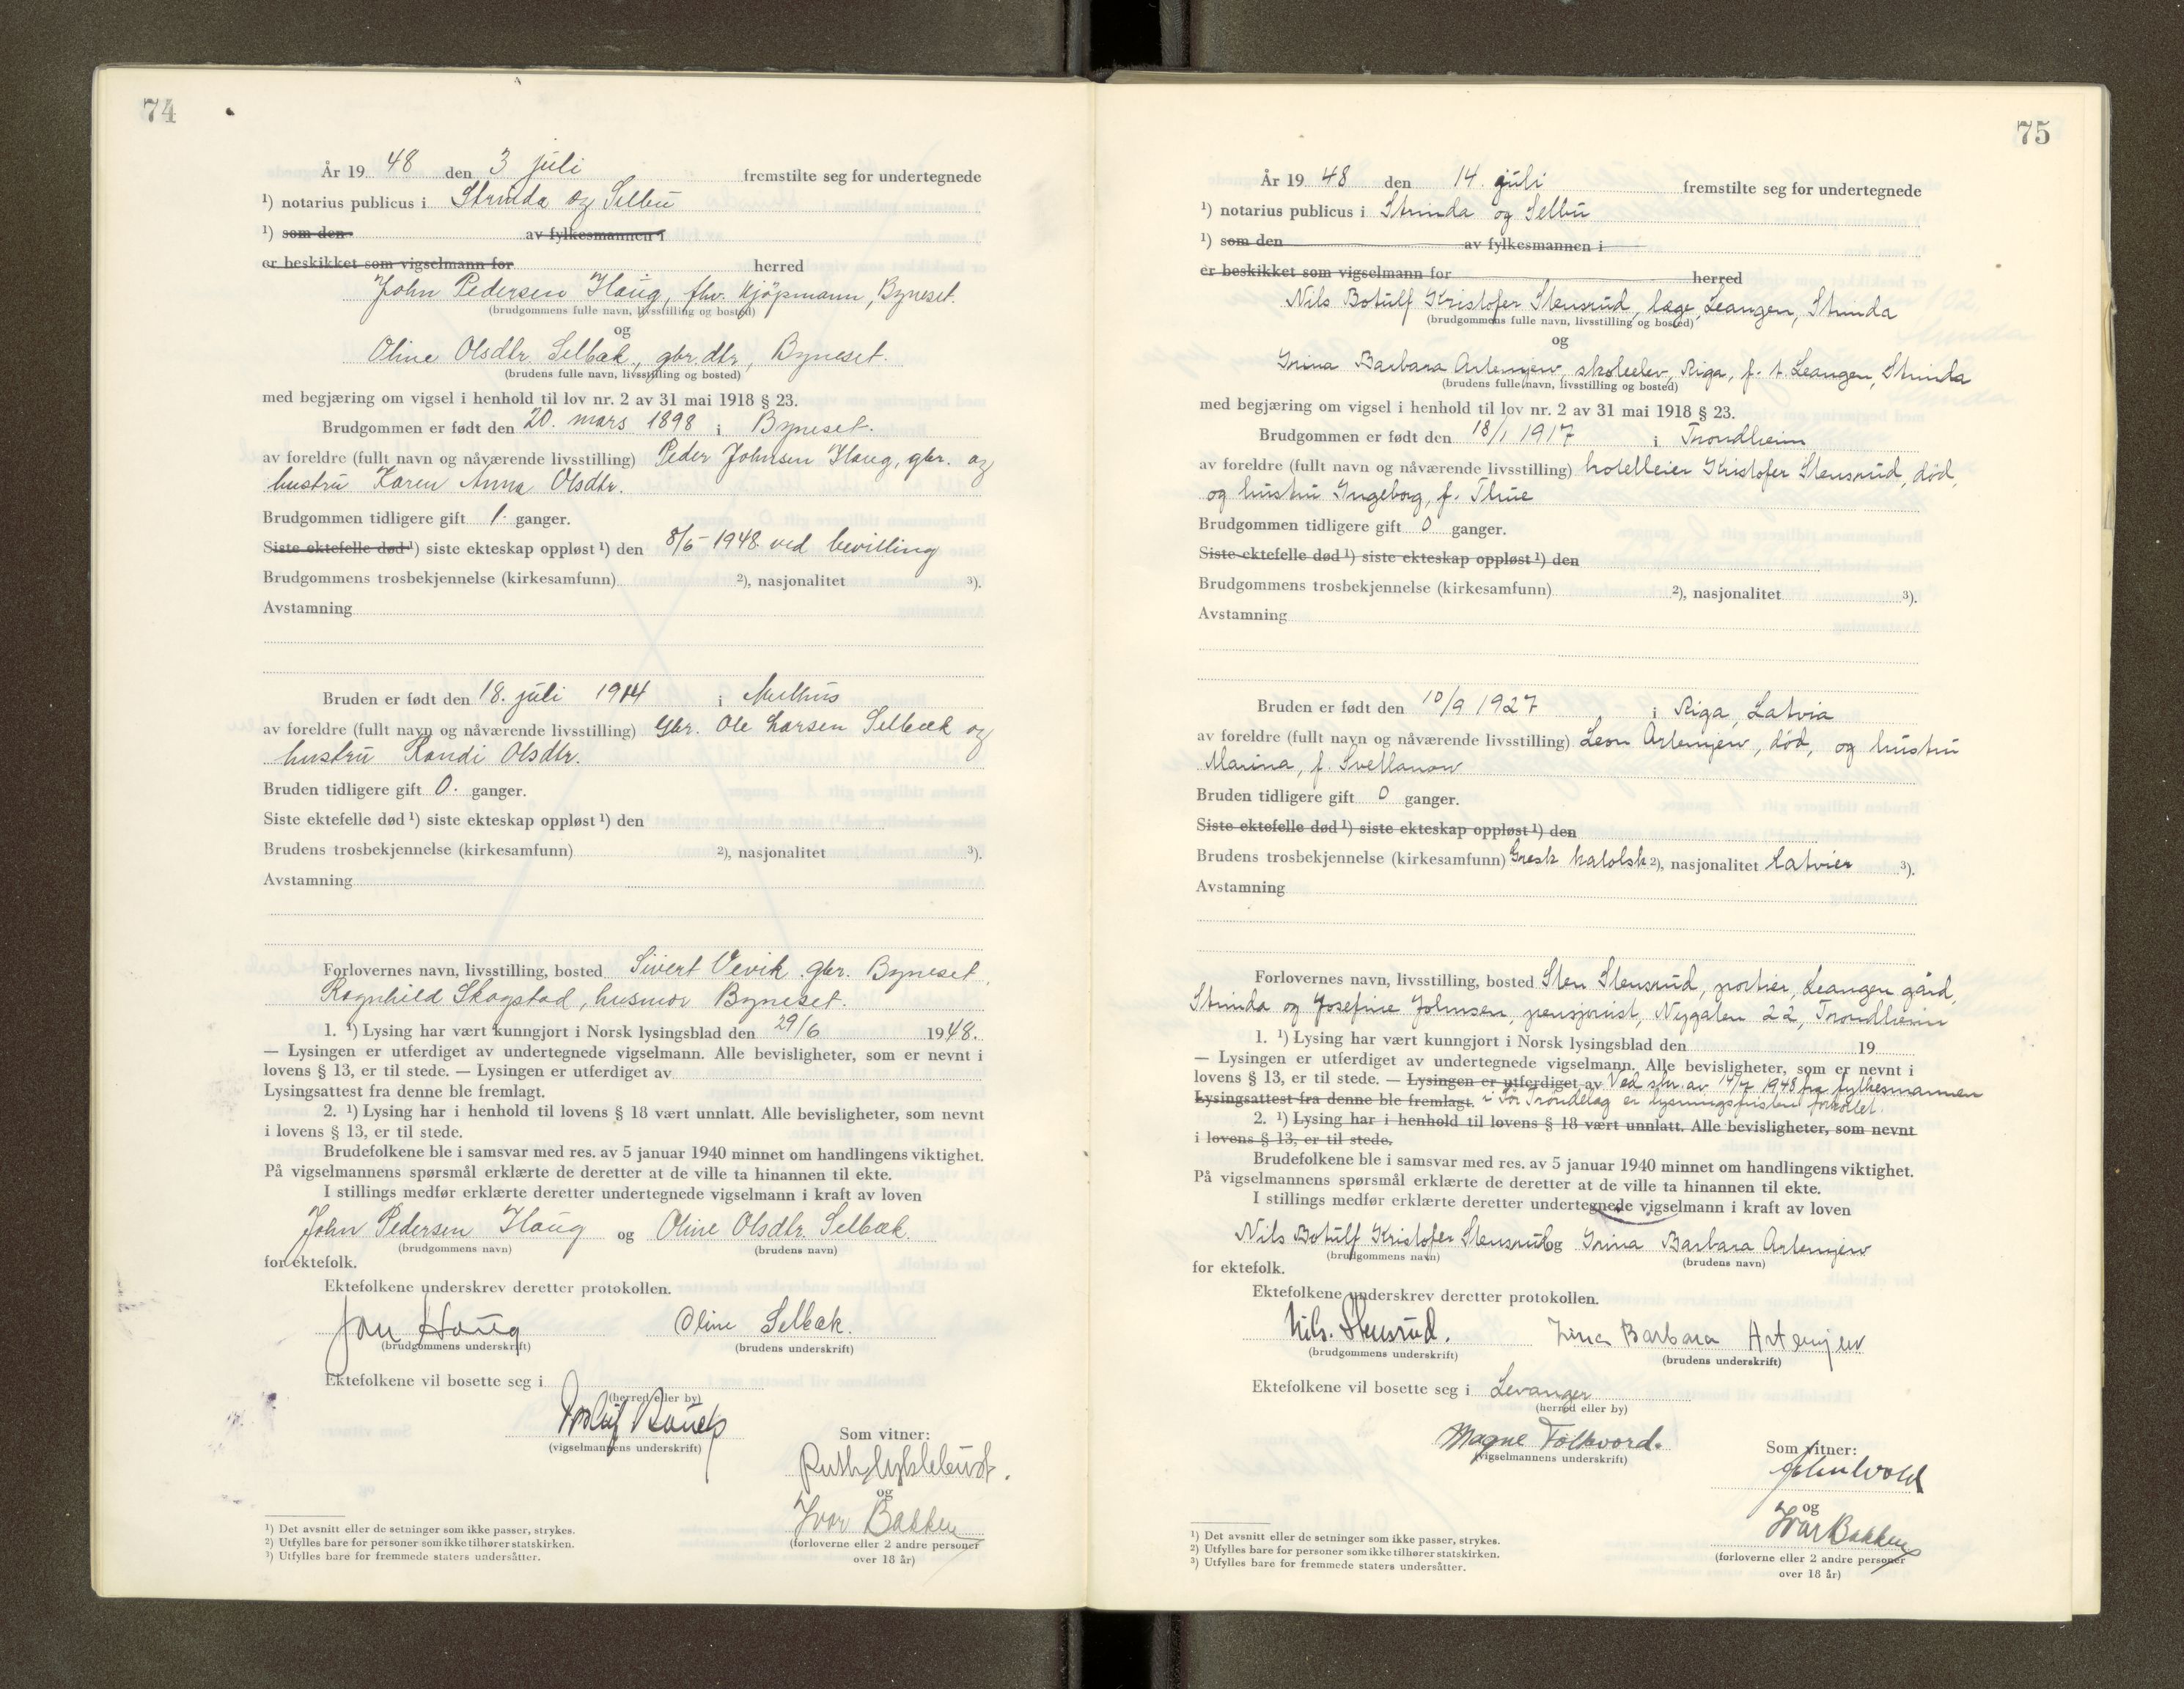 74
År 19 48 den 3 juli fremstilte seg for undertegnede
¹) notarius publicus i Strinda og Selbu
¹) som den av fylkesmannen i
er beskikket som vigselmann for herred
John Pedersen Haug, fhv. kjöpmann, Byneset.
(brudgommens fulle navn, livsstilling og bosted)
og
Oline Olsdtr. Selbæk, gbr.dtr., Byneset.
(brudens fulle navn, livsstilling og bosted)
med begjæring om vigsel i henhold til lov nr. 2 av 31 mai 1918 § 23.
Brudgommen er født den 20. mars 1898 i Byneset.
av foreldre (fullt navn og nåværende livsstilling) Peder Johnsen Haug, gbr. og
hustru Karen Anna Olsdtr.
Brudgommen tidligere gift 1. ganger.
Siste ektefelle død ¹) siste ekteskap oppløst ¹) den 8/5-1948 ved bevilling
Brudgommens trosbekjennelse (kirkesamfunn) ²), nasjonalitet ³).
Avstamning
Bruden er født den 18. juli 1914 i Melhus
av foreldre (fullt navn og nåværende livsstilling) Gbr. Ole Larsen Selbæk og
hustru Randi Olsdtr.
Bruden tidligere gift 0. ganger.
Siste ektefelle død ¹) siste ekteskap oppløst ¹) den
Brudens trosbekjennelse (kirkesamfunn) ²), nasjonalitet ³).
Avstamning
Forlovernes navn, livsstilling, bosted Sivert Vevik gbr. Byneset,
Ragnhild Skogstad, husmor Byneset.
1. ¹) Lysing har vært kunngjort i Norsk lysingsblad den 29/6 1948.
— Lysingen er utferdiget av undertegnede vigselmann. Alle bevisligheter, som er nevnt i
lovens § 13, er til stede. — Lysingen er utferdiget av
Lysingsattest fra denne ble fremlagt.
2. ¹) Lysing har i henhold til lovens § 18 vært unnlatt. Alle bevisligheter, som nevnt
i lovens § 13, er til stede.
Brudefolkene ble i samsvar med res. av 5 januar 1940 minnet om handlingens viktighet.
På vigselmannens spørsmål erklærte de deretter at de ville ta hinannen til ekte.
I stillings medfør erklærte deretter undertegnede vigselmann i kraft av loven
John Pedersen Haug og Oline Olsdtr. Selbæk.
(brudgommens navn) (brudens navn)
for ektefolk.
Ektefolkene underskrev deretter protokollen.
Jon Haug Oline Selbæk.
(brudgommens underskrift) (brudens underskrift)
Ektefolkene vil bosette seg i
(herred eller by)
(vigselmannens underskrift)
Som vitner:
Ruth Myklebust.
og
Ivar Bakken
(forloverne eller 2 andre personer
over 18 år)
¹) Det avsnitt eller de setninger som ikke passer, strykes.
²) Utfylles bare for personer som ikke tilhører statskirken.
³) Utfylles bare for fremmede staters undersåtter.
75
År 19 48 den 14. juli fremstilte seg for undertegnede
¹) notarius publicus i Strinda og Selbu
¹) som den av fylkesmannen i
er beskikket som vigselmann for herred
Nils Botulf Kristofer Stensrud, læge, Leangen, Strinda
(brudgommens fulle navn, livsstilling og bosted)
og
Irina Barbara Artemjew, skoleelev, Riga, f. t. Leangen, Strinda
(brudens fulle navn, livsstilling og bosted)
med begjæring om vigsel i henhold til lov nr. 2 av 31 mai 1918 § 23.
Brudgommen er født den 18/1 1917 i Trondheim
av foreldre (fullt navn og nåværende livsstilling) hotelleier Kristofer Stensrud, død,
og hustru Ingeborg, f. Thue
Brudgommen tidligere gift 0 ganger.
Siste ektefelle død ¹) siste ekteskap oppløst ¹) den
Brudgommens trosbekjennelse (kirkesamfunn) ²), nasjonalitet ³).
Avstamning
Bruden er født den 10/9 1927 i Riga, Latvia
av foreldre (fullt navn og nåværende livsstilling) Leon Artemjew, død, og hustru
Marina, f. Svetlanow
Bruden tidligere gift 0 ganger.
Siste ektefelle død ¹) siste ekteskap oppløst ¹) den
Brudens trosbekjennelse (kirkesamfunn) Gresk katolsk ²), nasjonalitet Latvier ³).
Avstamning
Forlovernes navn, livsstilling, bosted Sten Stensrud, portier, Leangen gård,
Strinda og Josefine Johnsen, pensjonist, Nygaten 22, Trondheim
1. ¹) Lysing har vært kunngjort i Norsk lysingsblad den 19
— Lysingen er utferdiget av undertegnede vigselmann. Alle bevisligheter, som er nevnt i
lovens § 13, er til stede. — Lysingen er utferdiget av Ved skr. av 14/7 1948 fra fylkesmannen
Lysingsattest fra denne ble fremlagt. i Sør Trøndelag er lysningsfristen forkortet.
2. ¹) Lysing har i henhold til lovens § 18 vært unnlatt. Alle bevisligheter, som nevnt
i lovens § 13, er til stede.
Brudefolkene ble i samsvar med res. av 5 januar 1940 minnet om handlingens viktighet.
På vigselmannens spørsmål erklærte de deretter at de ville ta hinannen til ekte.
I stillings medfør erklærte deretter undertegnede vigselmann i kraft av loven
Nils Botulf Kristofer Stensrud og Irina Barbara Artemjew
(brudgommens navn) (brudens navn)
for ektefolk.
Ektefolkene underskrev deretter protokollen.
Nils. Stensrud. Irina Barbara Artemjew
(brudgommens underskrift) (brudens underskrift)
Ektefolkene vil bosette seg i Levanger
(herred eller by)
Magne Folkvord.
(vigselmannens underskrift)
Som vitner:
John Wold
og
Ivar Bakken
(forloverne eller 2 andre personer
over 18 år)
¹) Det avsnitt eller de setninger som ikke passer, strykes.
²) Utfylles bare for personer som ikke tilhører statskirken.
³) Utfylles bare for fremmede staters undersåtter.